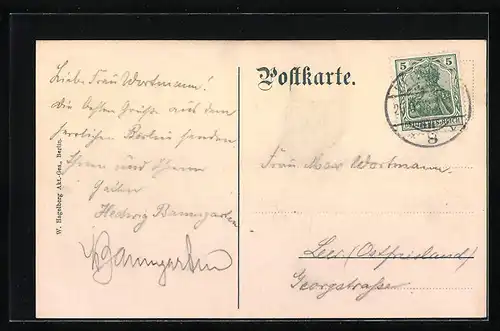 Liebe Frau Wortmann!
die besten Grüße aus dem
herrlichen Berlin senden
Ihnen und Ihrem
Gatten
Hedwig Baumgarten
Baumgarten
W. Hagelberg Akt.-Ges., Berlin.
Postkarte.
5 5
DEUTSCHES REICH
8
Frau Max Wortmann.
Leer (Ostfriesland)
Georgstrasse